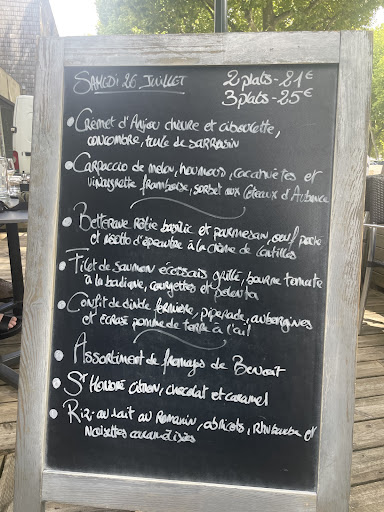 SAMEDI 26 JUILLET
2 plats - 21€
3 plats - 25€
• Crèmet d'Anjou chèvre et ciboulette,
concombre, tuile de SARRASIN
• Carpaccio de melon, houmous, cacahuètes et
vinaigrette framboise, sorbet aux Coteaux d'Aubance
• Betterave rôtie basilic et parmesan, oeuf
et risotto d'épeautre à la crème de lentilles
• Filet de saumon écossais grillé, beurre tomate
à la badiane, courgettes et polenta
• Confit de dinde fermière, piperade, aubergines
et écrasé pomme de terre à l'ail
• Assortiment de fromages de Benoit
• St Honoré citron, chocolat et caramel
• Riz-au lait au Romarin, abricots, Rhubarbe et
Noisettes caramélisées